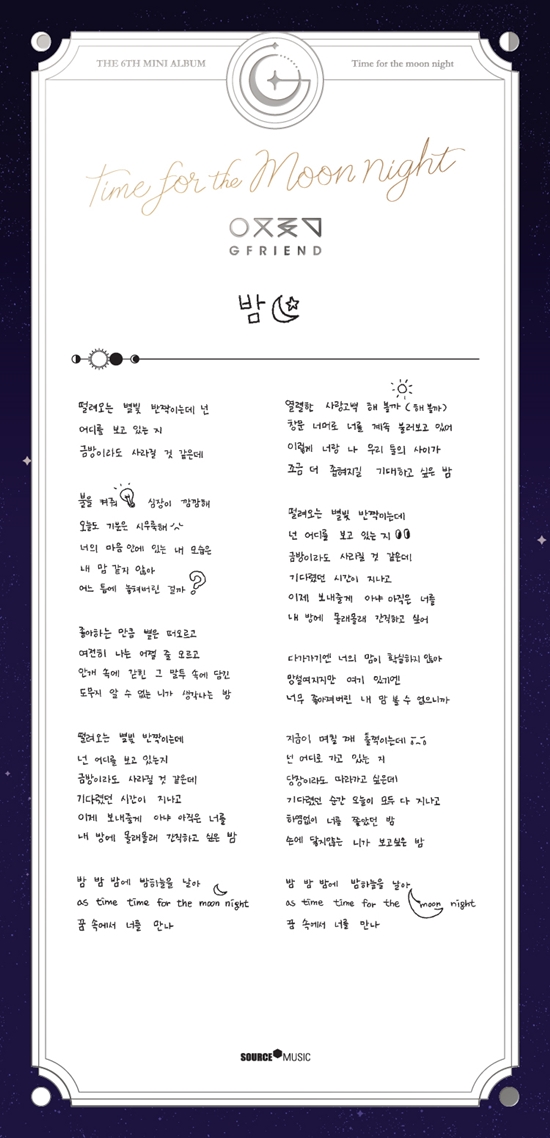 THE 6TH MINI ALBUM
Time for the moon night
Time for the Moon night
GFRIEND
밤
떨려오는 별빛 반짝이는데 넌
어디를 보고 있는 지
금방이라도 사라질 것 같은데
불을 켜줘 심장이 깜깜해
오늘도 기분은 시무룩해
너의 마음 안에 있는 내 모습은
내 맘 같지 않아
어느 틈에 놓쳐버린 걸까?
좋아하는 만큼 별은 떠오르고
여전히 나는 어쩔 줄 모르고
안개 속에 갇힌 그 말투 속에 담긴
도무지 알 수 없는 니가 생각나는 밤
떨려오는 별빛 반짝이는데
넌 어디를 보고 있는지
금방이라도 사라질 것 같은데
기다렸던 시간이 지나고
이제 보내줄게 아냐 아직은 너를
내 방에 몰래몰래 간직하고 싶은 밤
밤 밤 밤에 밤하늘을 날아
as time time for the moon night
꿈 속에서 너를 만나
열렬한 사랑고백 해 볼까 (해 볼까)
창문 너머로 너를 계속 불러보고 있어
이렇게 너랑 나 우리 둘의 사이가
조금 더 좁혀지길 기대하고 싶은 밤
떨려오는 별빛 반짝이는데
넌 어디를 보고 있는 지
금방이라도 사라질 것 같은데!
기다렸던 시간이 지나고
이제 보내줄게 아냐 아직은 너를
내 방에 몰래몰래 간직하고 싶어
다가가기엔 너의 맘이 확실하지 않아
멀어지지만 여기 있기엔
너무 좋아져버린 내 맘 볼 수 없으니까
지금이 며칠 째 훌쩍이는데
넌 어디로 가고 있는 지
당장이라도 따라가고 싶은데!
기다렸던 순간 오늘이 모두 다 지나고
하염없이 너를 쫓았던 밤
손에 닿지않는 니가 보고싶은 밤
밤 밤 밤에 밤하늘을 날아
as time time for the moon night
꿈 속에서 너를 만나
SOURCE MUSIC